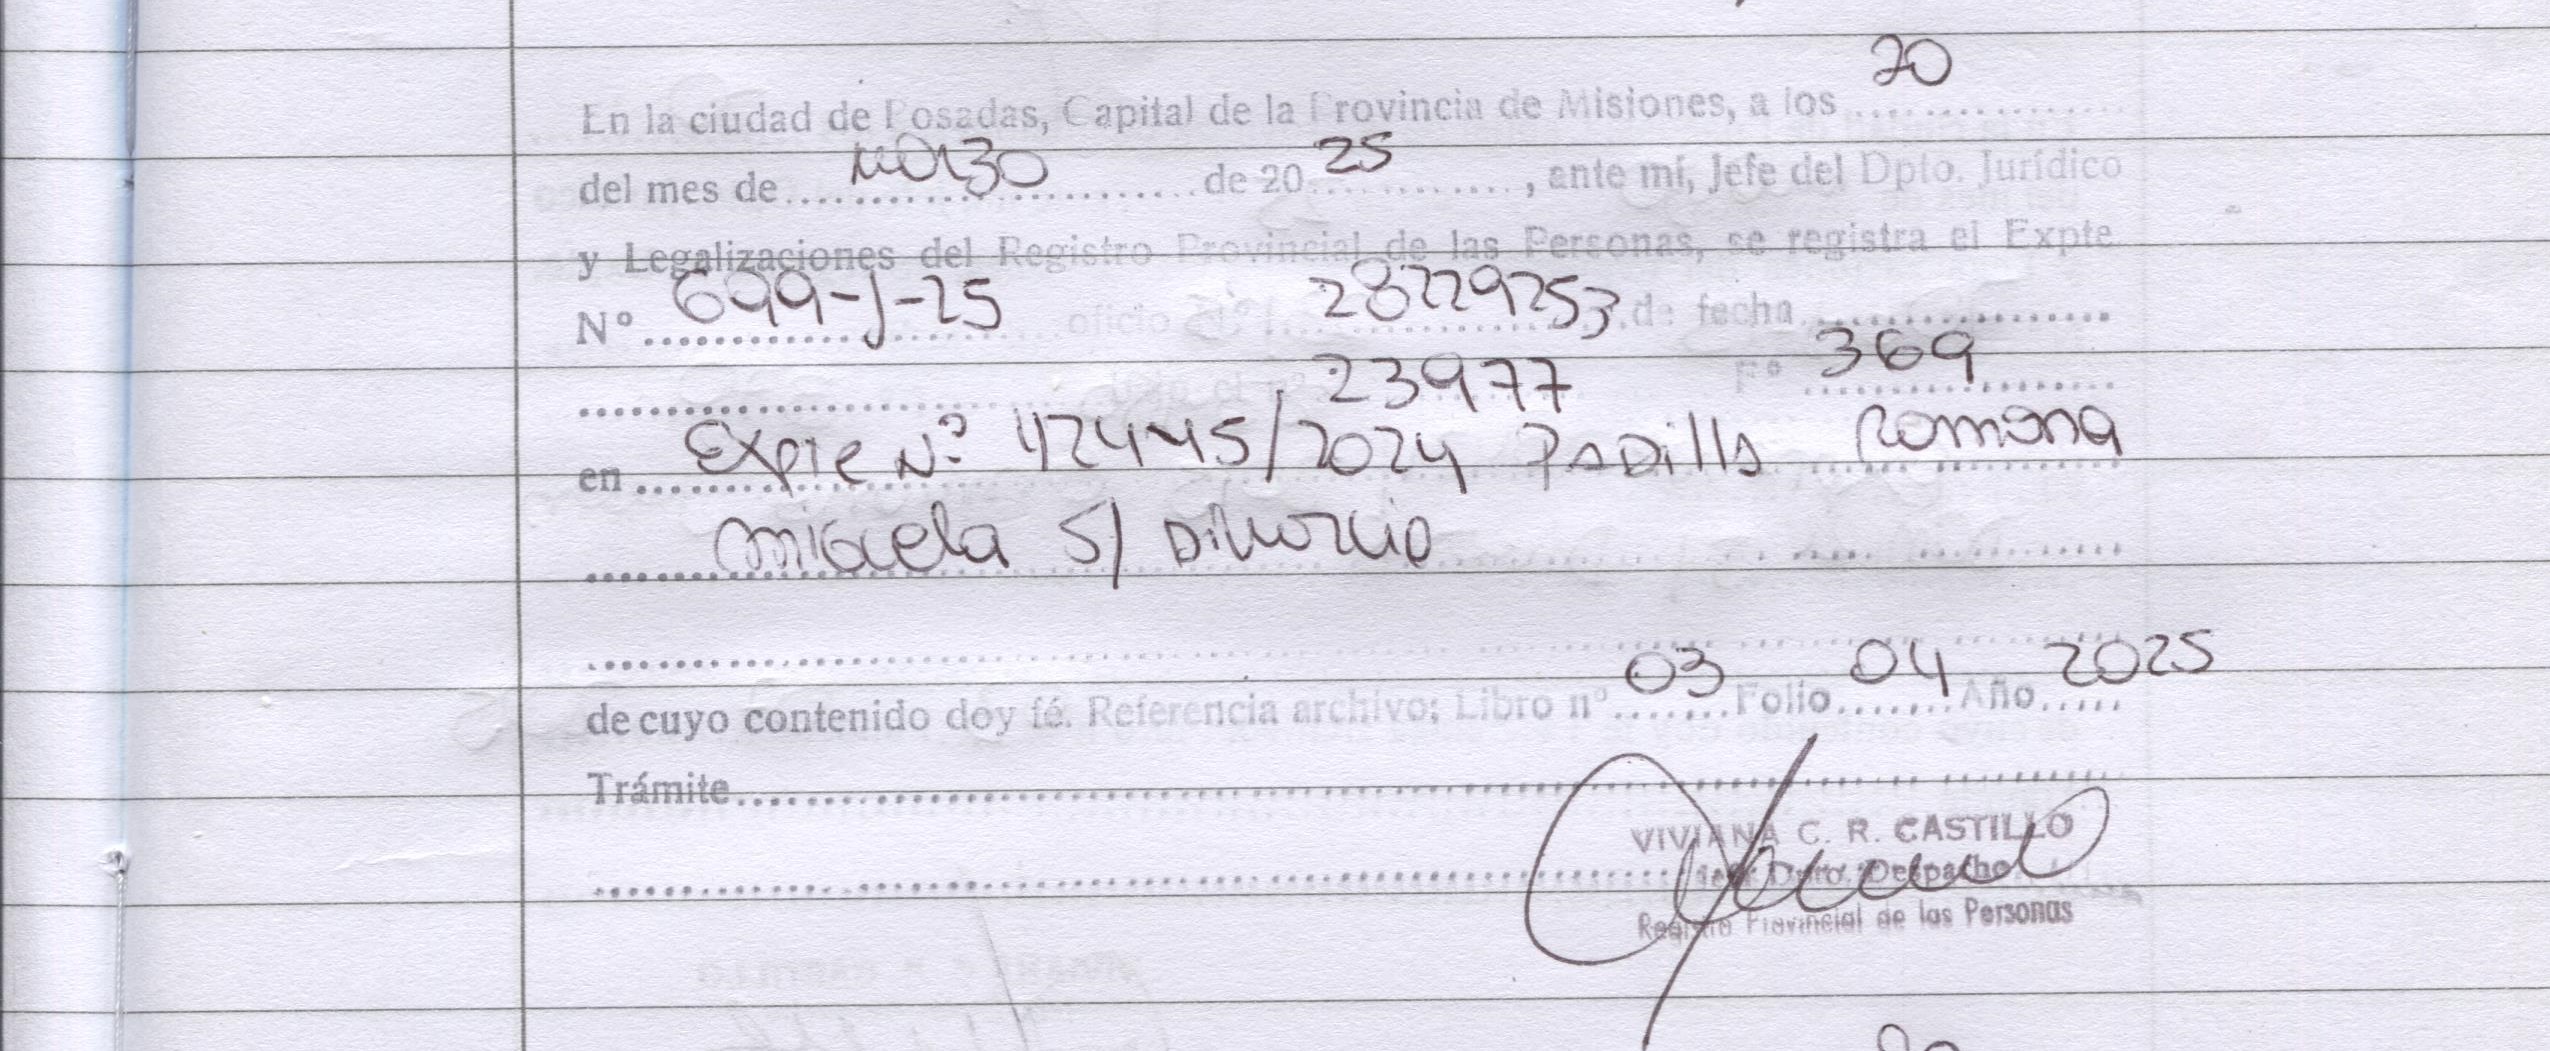 20
En la ciudad de Posadas, Capital de la Provincia de Misiones, a los ..............
del mes de ..... marzo ..... de 20 25 ........., ante mí, Jefe del Dpto. Jurídico
y Legalizaciones del Registro Provincial de las Personas, se registra el Expte
Nº 699-J-25 oficio Nº 28229253 de fecha ..............
.............. bajo el nº 23977 Fº 369
en Expte Nº 112445/2024 Padilla Romona
micaela S/ Divorcio
de cuyo contenido doy fé. Referencia archivo: Libro nº 03 Folio 04 Año 2025
Trámite..............
VIVIANA C. R. CASTILLO
Jefe Dpto. Despacho
Registro Provincial de las Personas